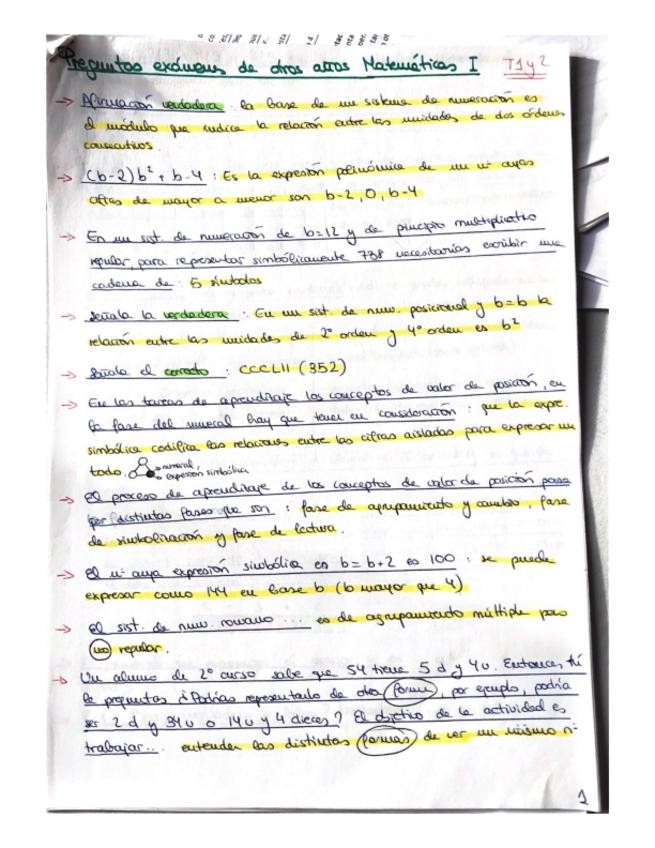 Preguntas exámenes de otros años Matemáticas I T1 y 2
→ Afirmación verdadera : la base de un sistema de numeración es
el módulo que indica la relación entre las unidades de dos órdenes
consecutivos.
→ (b-2)b² + b-4 : Es la expresión polinómica de un nº cuyas
cifras de mayor a menor son b-2, 0, b-4
→ En un sist. de numeración de b=12 y de principio multiplicativo
regular, para representar simbólicamente 738 necesitarías escribir una
cadena de : 5 símbolos
→ Señala la verdadera : En un sist. de num. posicional y b=b la
relación entre las unidades de 2º orden y 4º orden es b²
→ Señala el correcto : CCCLII (352)
→ En las tareas de aprendizaje los conceptos de valor de posición, en
la fase del numeral hay que tener en consideración : que la expre.
simbólica codifica las relaciones entre las cifras aisladas para expresar un
todo. numeral,
expresión simbólica
→ El proceso de aprendizaje de los conceptos de valor de posición pasa
por distintas fases que son : fase de agrupamiento y cambio, fase
de simbolización y fase de lectura.
→ El nº cuya expresión simbólica en b=b+2 es 100 : se puede
expresar como 144 en base b (b mayor que 4)
→ El sist. de num. romano ... es de agrupamiento múltiple pero
no regular.
→ Un alumno de 2º curso sabe que 54 tiene 5 d y 4u. Entonces, tú
le preguntas ¿Podrías representarlo de otra forma, por ejemplo, podría
ser 2 d y 34u o 14u y 4 dieces? El objetivo de la actividad es
trabajar... entender las distintas formas de ver un mismo nº
1